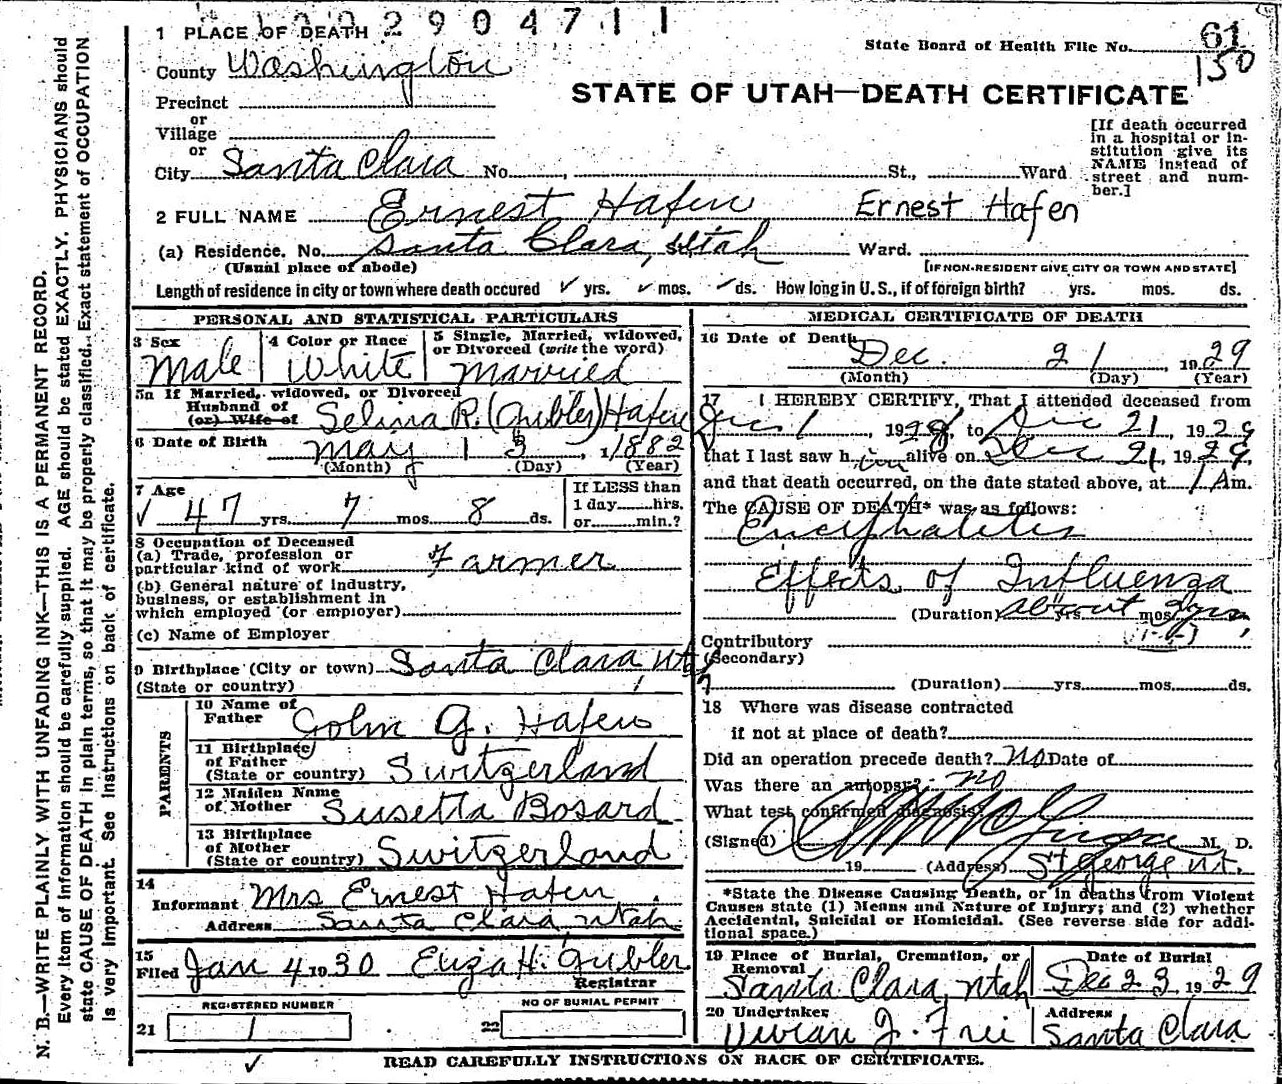 2904711
1 PLACE OF DEATH
State Board of Health File No. 61
150
County Washington
STATE OF UTAH—DEATH CERTIFICATE
Precinct
or
Village
or
City Santa Clara No. , St., Ward
[If death occurred in a hospital or in-
stitution give its
NAME instead of
street and num-
ber.]
2 FULL NAME Ernest Hafen Ernest Hafen
(a) Residence. No. Santa Clara, Utah St. Ward.
(Usual place of abode) [IF NON-RESIDENT GIVE CITY OR TOWN AND STATE]
Length of residence in city or town where death occured ✓ yrs. ✓ mos. ✓ ds. How long in U.S., if of foreign birth? yrs. mos. ds.
PERSONAL AND STATISTICAL PARTICULARS
3 Sex 4 Color or Race 5 Single, Married, widowed,
or Divorced (write the word)
Male White Married
5a If Married, widowed, or Divorced
Husband of
(or) Wife of Selina R. (Gubler) Hafen
6 Date of Birth May 13, 1882
(Month) (Day) (Year)
7 Age If LESS than
✓ 47 yrs. 7 mos. 8 ds. 1 day hrs.
or min.?
8 Occupation of Deceased
(a) Trade, profession or
particular kind of work Farmer
(b) General nature of industry,
business, or establishment in
which employed (or employer)
(c) Name of Employer
9 Birthplace (City or town) Santa Clara, Ut
(State or country)
PARENTS
10 Name of
Father John G. Hafen
11 Birthplace
of Father
(State or country) Switzerland
12 Maiden Name
of Mother Susetta Bosard
13 Birthplace
of Mother
(State or country) Switzerland
14
Informant Mrs Ernest Hafen
Address Santa Clara, Utah
15
Filed Jan 4 1930 Eliza H. Gubler
Registrar
REGISTERED NUMBER NO OF BURIAL PERMIT
21 1 22
MEDICAL CERTIFICATE OF DEATH
16 Date of Death
Dec. 21 1929
(Month) (Day) (Year)
17 I HEREBY CERTIFY, That I attended deceased from
1 , 1928, to Dec 21, 1929
that I last saw him alive on Dec 21, 1929
and that death occurred, on the date stated above, at 1 Am.
The CAUSE OF DEATH* was as follows:
Encephalitis
Effects of Influenza
(Duration) about yrs. mos. 2 yrs.
Contributory
(Secondary)
(Duration) yrs. mos. ds.
18 Where was disease contracted
if not at place of death?
Did an operation precede death? no Date of
Was there an autopsy? no
What test confirmed diagnosis?
(Signed) M. D.
19 (Address) St George Ut.
*State the Disease Causing Death, or in deaths from Violent
Causes state (1) Means and Nature of Injury; and (2) whether
Accidental, Suicidal or Homicidal. (See reverse side for addi-
tional space.)
19 Place of Burial, Cremation, or
Removal Date of Burial
Santa Clara, Utah Dec 23, 1929
20 Undertaker Address
Vivian J. Frei Santa Clara
✓ READ CAREFULLY INSTRUCTIONS ON BACK OF CERTIFICATE.
N. B.—WRITE PLAINLY WITH UNFADING INK—THIS IS A PERMANENT RECORD.
Every item of information should be carefully supplied. AGE should be stated EXACTLY. PHYSICIANS should
state CAUSE OF DEATH in plain terms, so that it may be properly classified. Exact statement of OCCUPATION
is very important. See instructions on back of certificate.